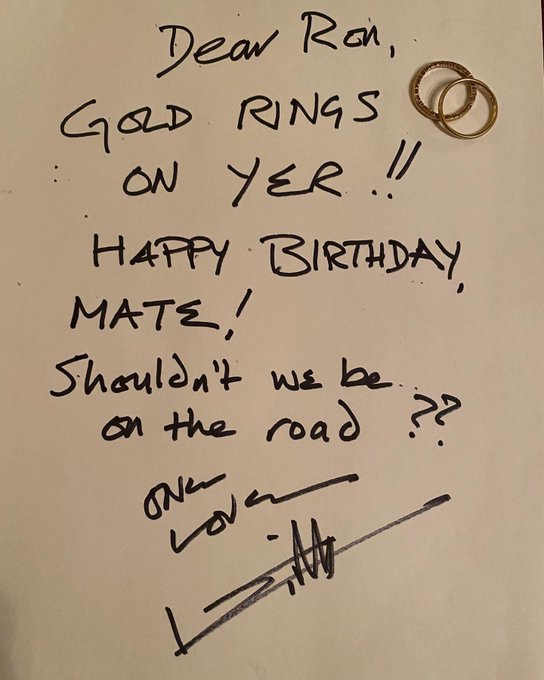 Dear Ron,
GOLD RINGS
ON YER!!
HAPPY BIRTHDAY,
MATE!
Shouldn't we be
on the road ??
ONE
LOVE